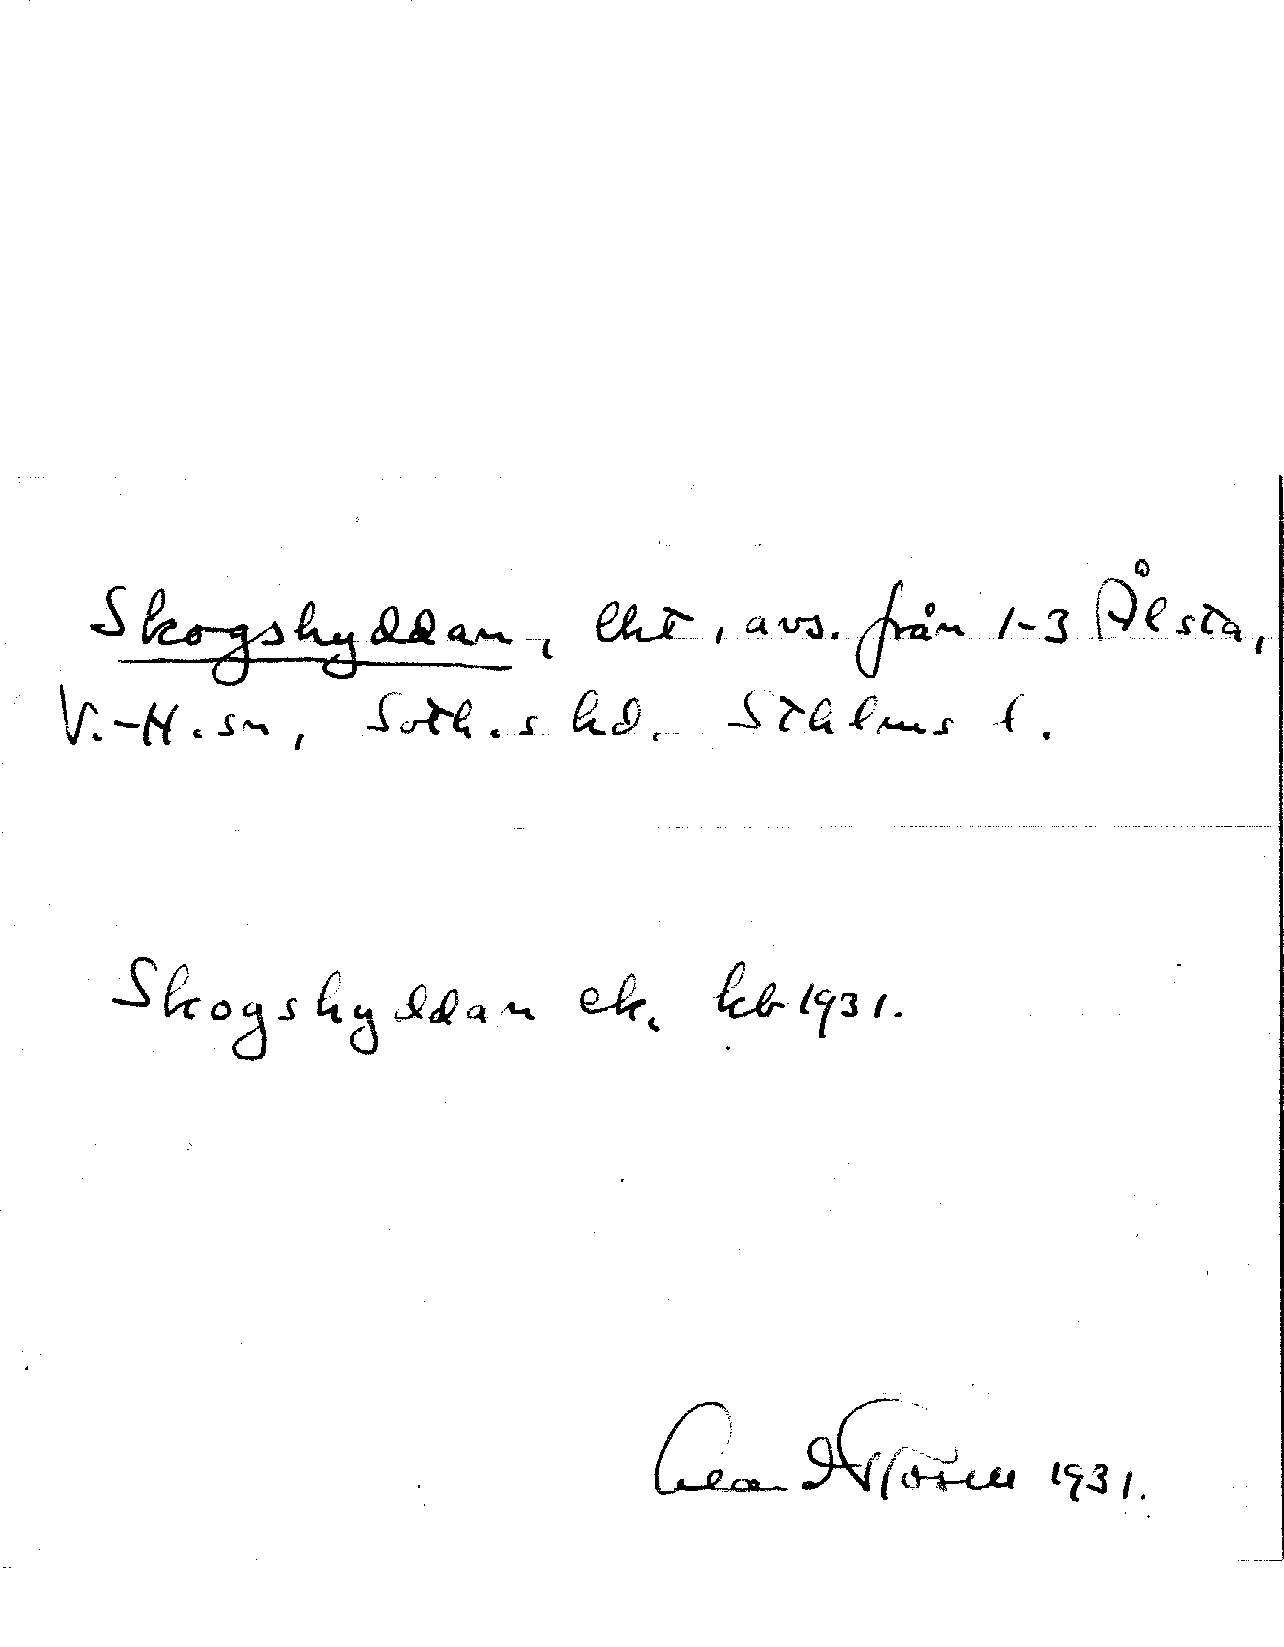 Skogshyddan, lht, avs. från 1-3 Ålsta,
V.-H. sn, Soth.s hd. Sthlms l.
Skogshyddan ek. kb 1931.
1931.